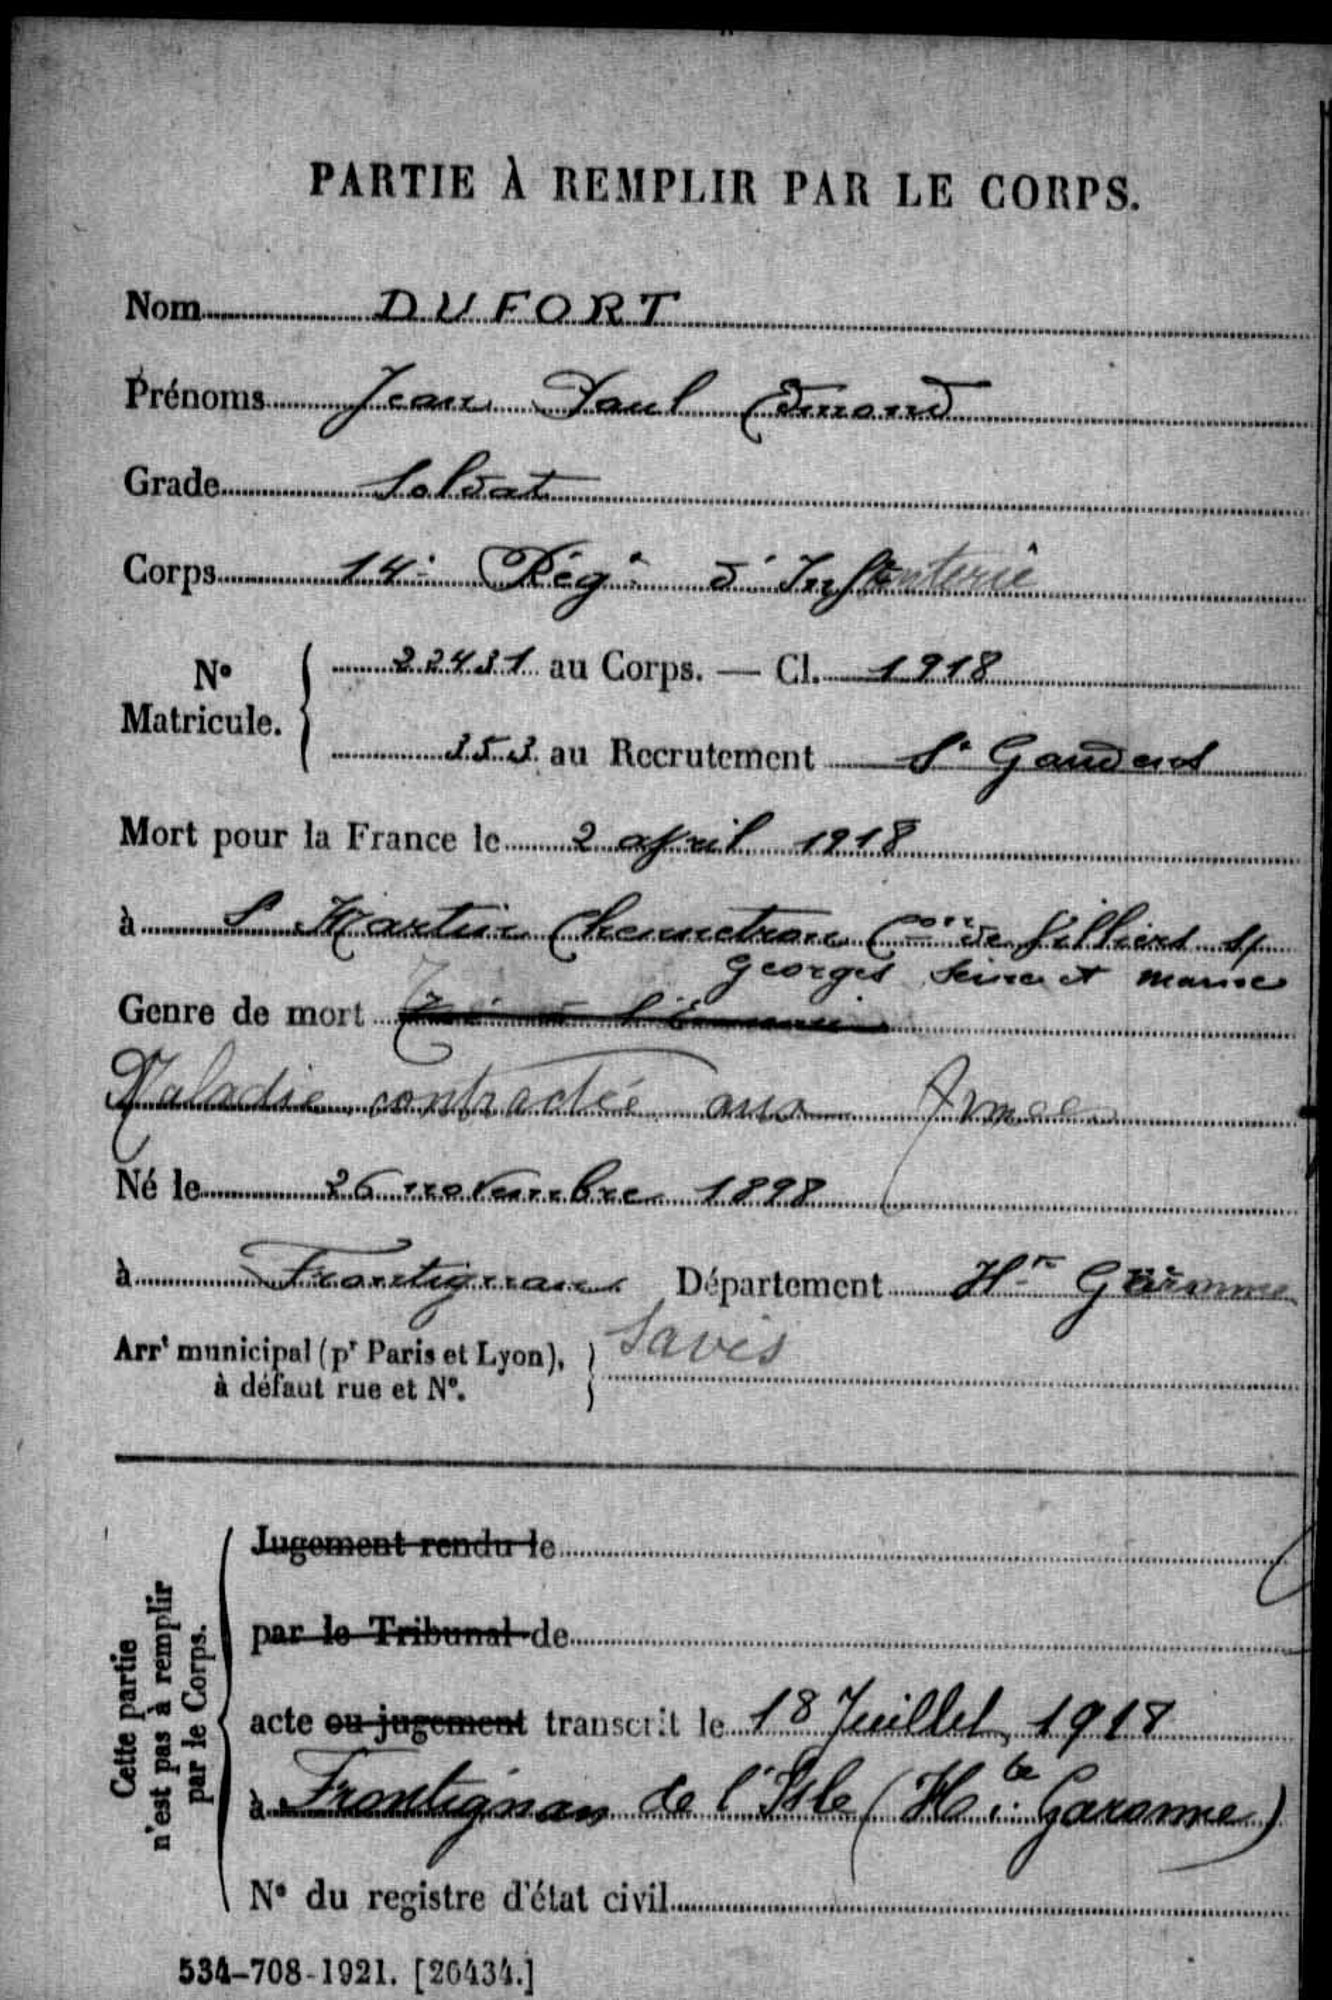 PARTIE À REMPLIR PAR LE CORPS.
Nom DUFORT
Prénoms Jean Paul Edmond
Grade Soldat
Corps 14e Régt d'Infanterie
No Matricule. 22431 au Corps. — Cl. 1918
353 au Recrutement St Gaudens
Mort pour la France le 2 april 1918
à St Martin Chennetron Con de Villiers St
Georges Seine et Marne
Genre de mort
Maladie contractée aux Armées
Né le 26 novembre 1898
à Frontignan Département Hte Garonne
Savès
Arrt municipal (pr Paris et Lyon),
à défaut rue et No.
Cette partie
n'est pas à remplir
par le Corps.
Jugement rendu le
par le Tribunal de
acte ou jugement transcrit le 18 Juillet 1918
à Frontignan de l'Isle (Hte Garonne)
No du registre d'état civil
534-708-1921. [26434.]